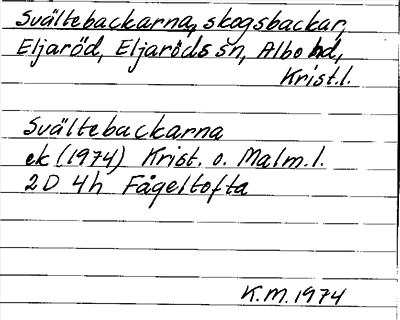 Svältebackarna, skogsbackar,
Eljaröd, Eljaröds sn, Albo hd,
Krist.l.
Svältebackarna
ek (1974) Krist. o. Malm.l.
2D 4h Fågeltofta
K.M. 1974